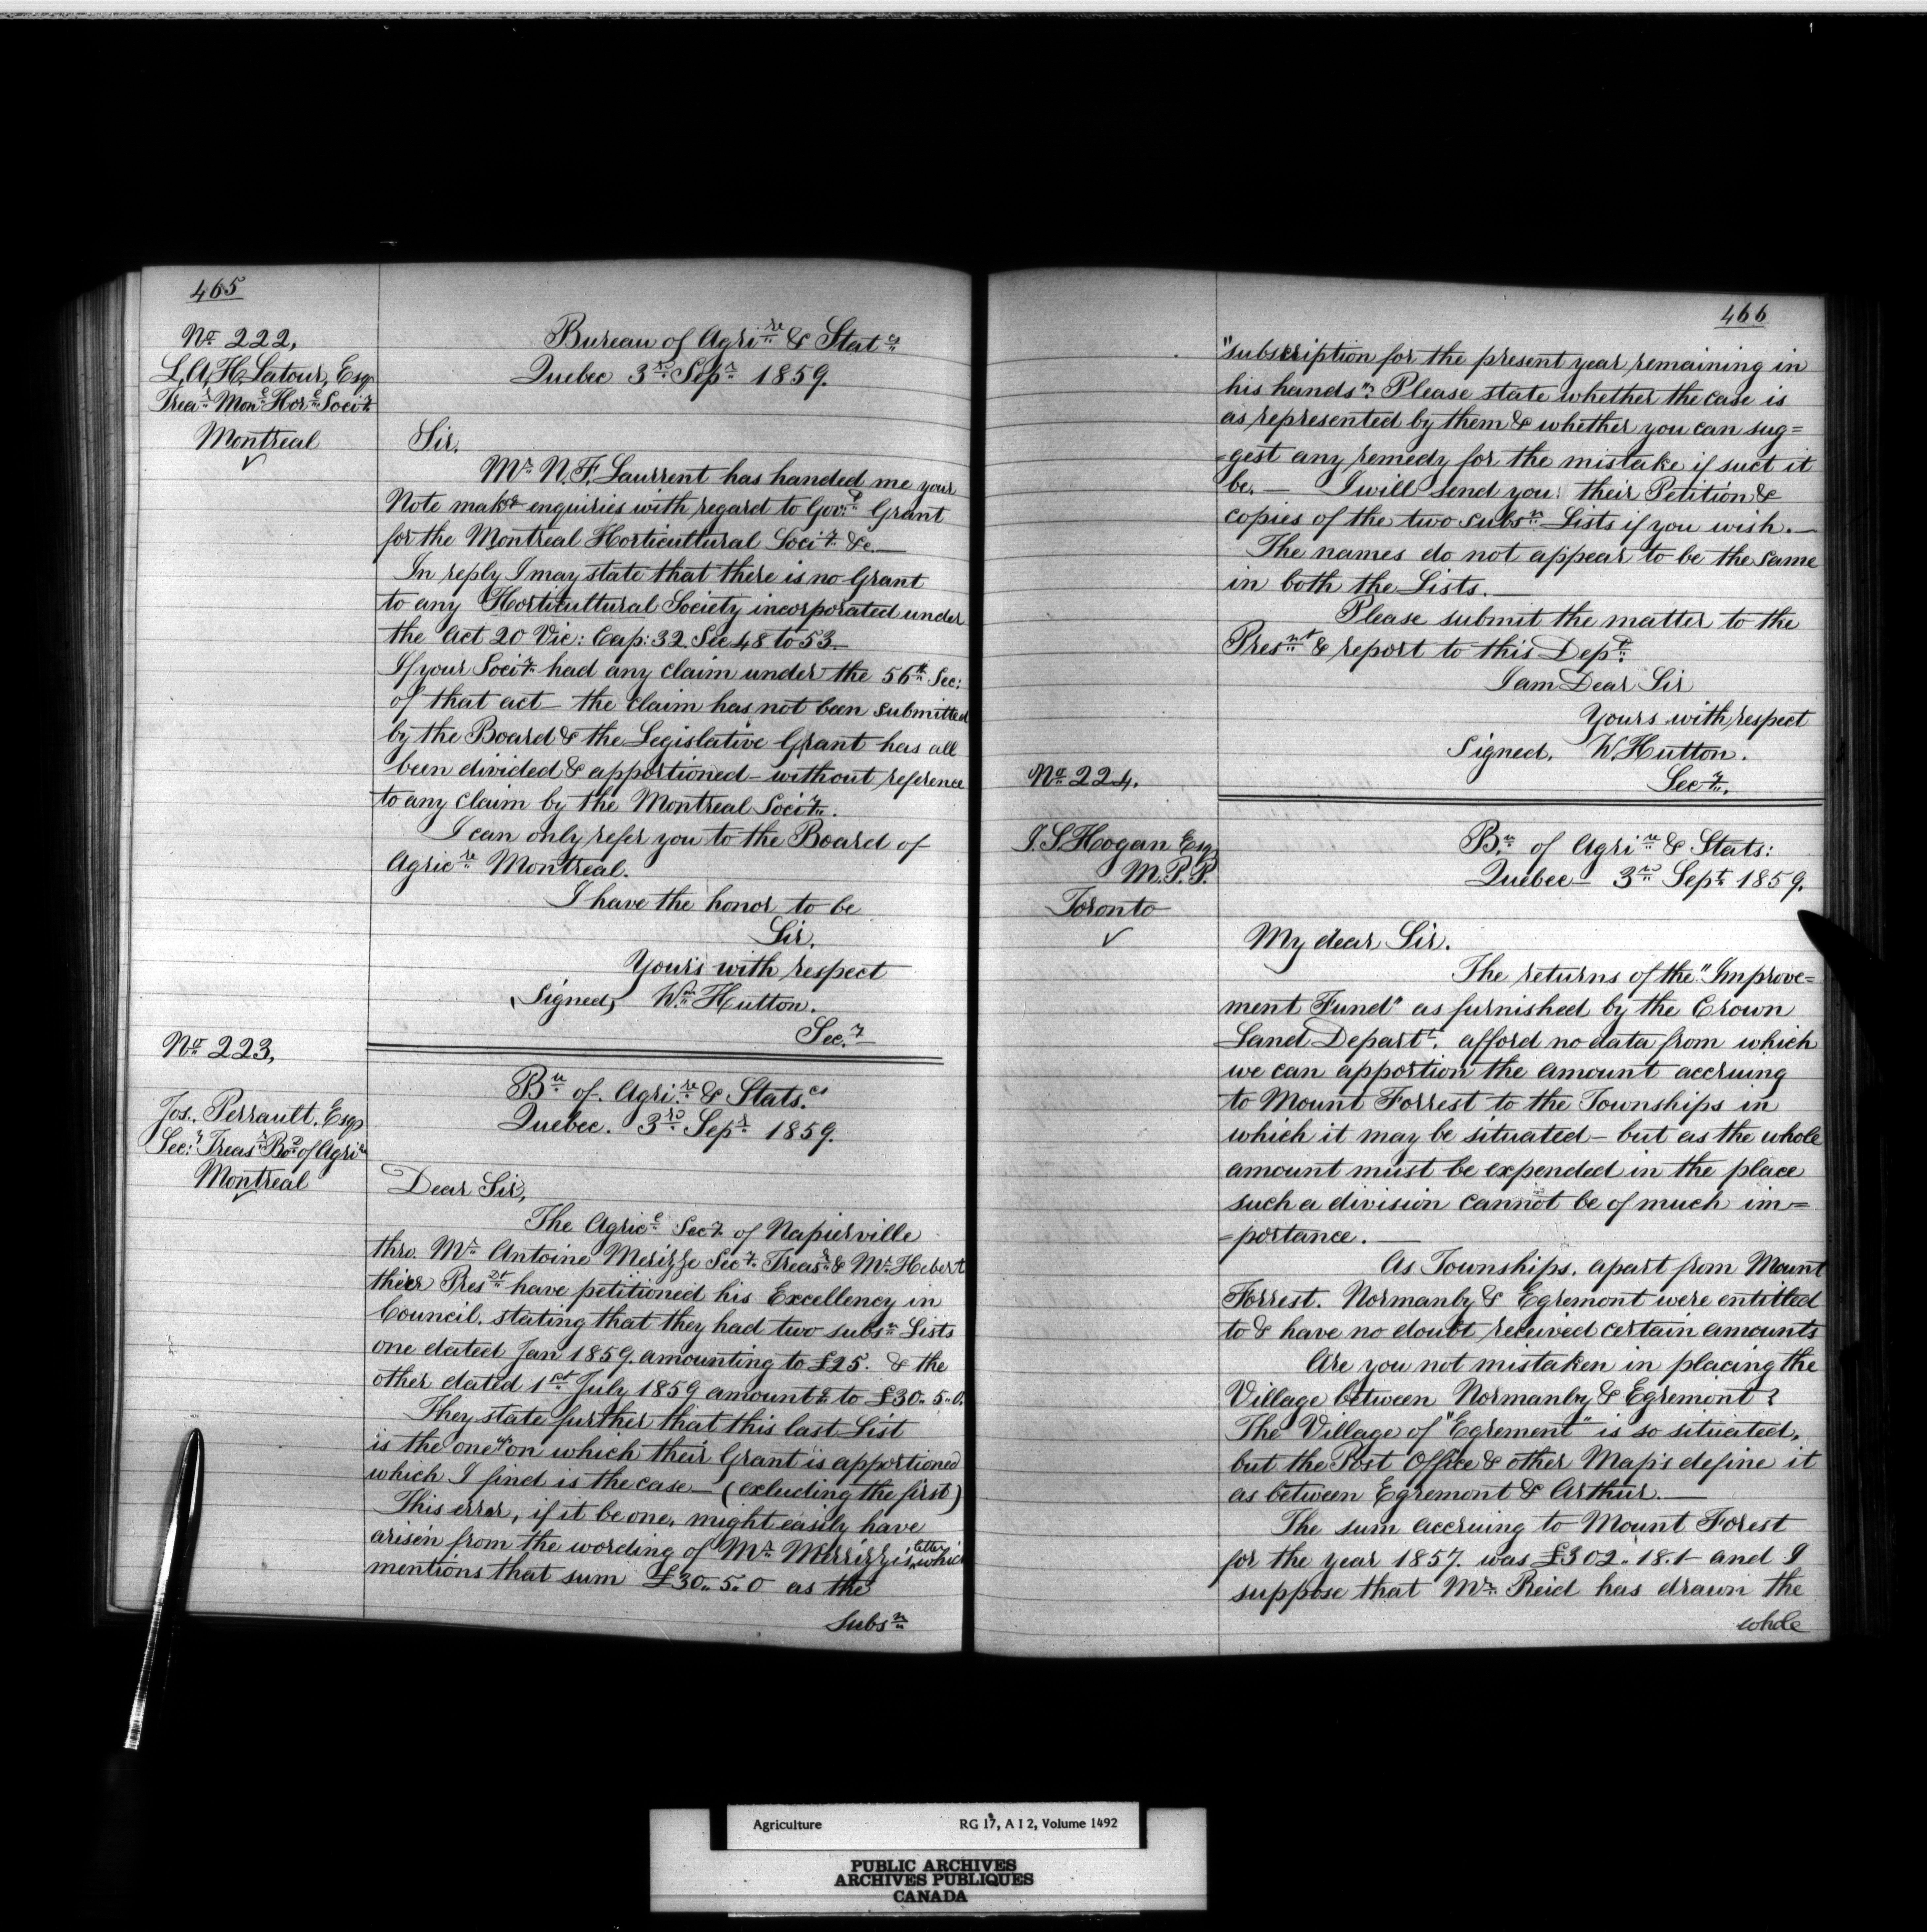 465
No 222,
L, A, H, Latour, Esq
Trear Monl Horl Socity
Montreal
Bureau of Agrire & Stats
Quebec 3rd Sepr 1859.
Sir.
Mr N. F. Laurrent has handed me your
Note makg enquiries with regard to Govt Grant
for the Montreal Horticultural Socity &c.—
In reply I may state that there is no Grant
to any Horticultural Society incorporated under
the Act 20 Vic: Cap: 32 Sec 48 to 53—
If your Socity had any claim under the 56th Sec:
of that act— the claim has not been submitted
by the Board & the Legislative Grant has all
been divided & apportioned— without reference
to any claim by the Montreal Socity.
I can only refer you to the Board of
Agricre Montreal.
I have the honor to be
Sir.
Your's with respect
(Signed) Wm Hutton.
Secy
No 223,
Jos. Perrault. Esq
Secy Treasr Bd of Agrire
Montreal
Bu of Agrire & Statscs
Quebec. 3rd Sepr 1859.
Dear Sir,
The Agricl Secy of Napierville
thro. Mr Antoine Merizze Secy Treasr & Mr Hebert
their Presdt have petitioned his Excellency in
Council. stating that they had two subsn Lists
one dated Jan 1859. amounting to £25. & the
other dated 1st July 1859 amountg to £30. 5. 0.
They state further that this last List
is the one upon which their Grant is apportioned
which I find is the case— (excluding the first)
This error, if it be one, might easily have
arisen from the wording of Mr Merizzi's letter which
mentions that sum £30. 5. 0 as the
Subsn
466
"subscription for the present year remaining in
his hands". Please state whether the case is
as represented by them & whether you can sug=
=gest any remedy for the mistake if suct it
be.— I will send you their Petition &
copies of the two subsn Lists if you wish.—
The names do not appear to be the same
in both the Lists.—
Please submit the matter to the
Presnt & report to this Dept.
I am Dear Sir
Yours with respect
Signed. W. Hutton.
Secy.
No 224.
J. S. Hogan Esq
M. P. P.
Toronto
Bu of Agrire & Stats:
Quebec— 3rd Sept 1859.
My dear Sir.
The returns of the "Improve=
ment Fund" as furnished by the Crown
Land Departt. afford no data from which
we can apportion the amount accruing
to Mount Forrest to the Townships in
which it may be situated— but as the whole
amount must be expended in the place
such a division cannot be of much im=
=portance.—
As Townships, apart from Mount
Forrest. Normanby & Egremont were entitled
to & have no doubt received certain amounts
Are you not mistaken in placing the
Village between Normanby & Egremont?
The Village of "Egrement" is so situated,
but the Post Office & other Maps define it
as between Egremont & Arthur.—
The sum accruing to Mount Forest
for the year 1857. was £302. 18. 1— and I
suppose that Mr. Reid has drawn the
whole
Agriculture RG 17, A I 2, Volume 1492
PUBLIC ARCHIVES
ARCHIVES PUBLIQUES
CANADA